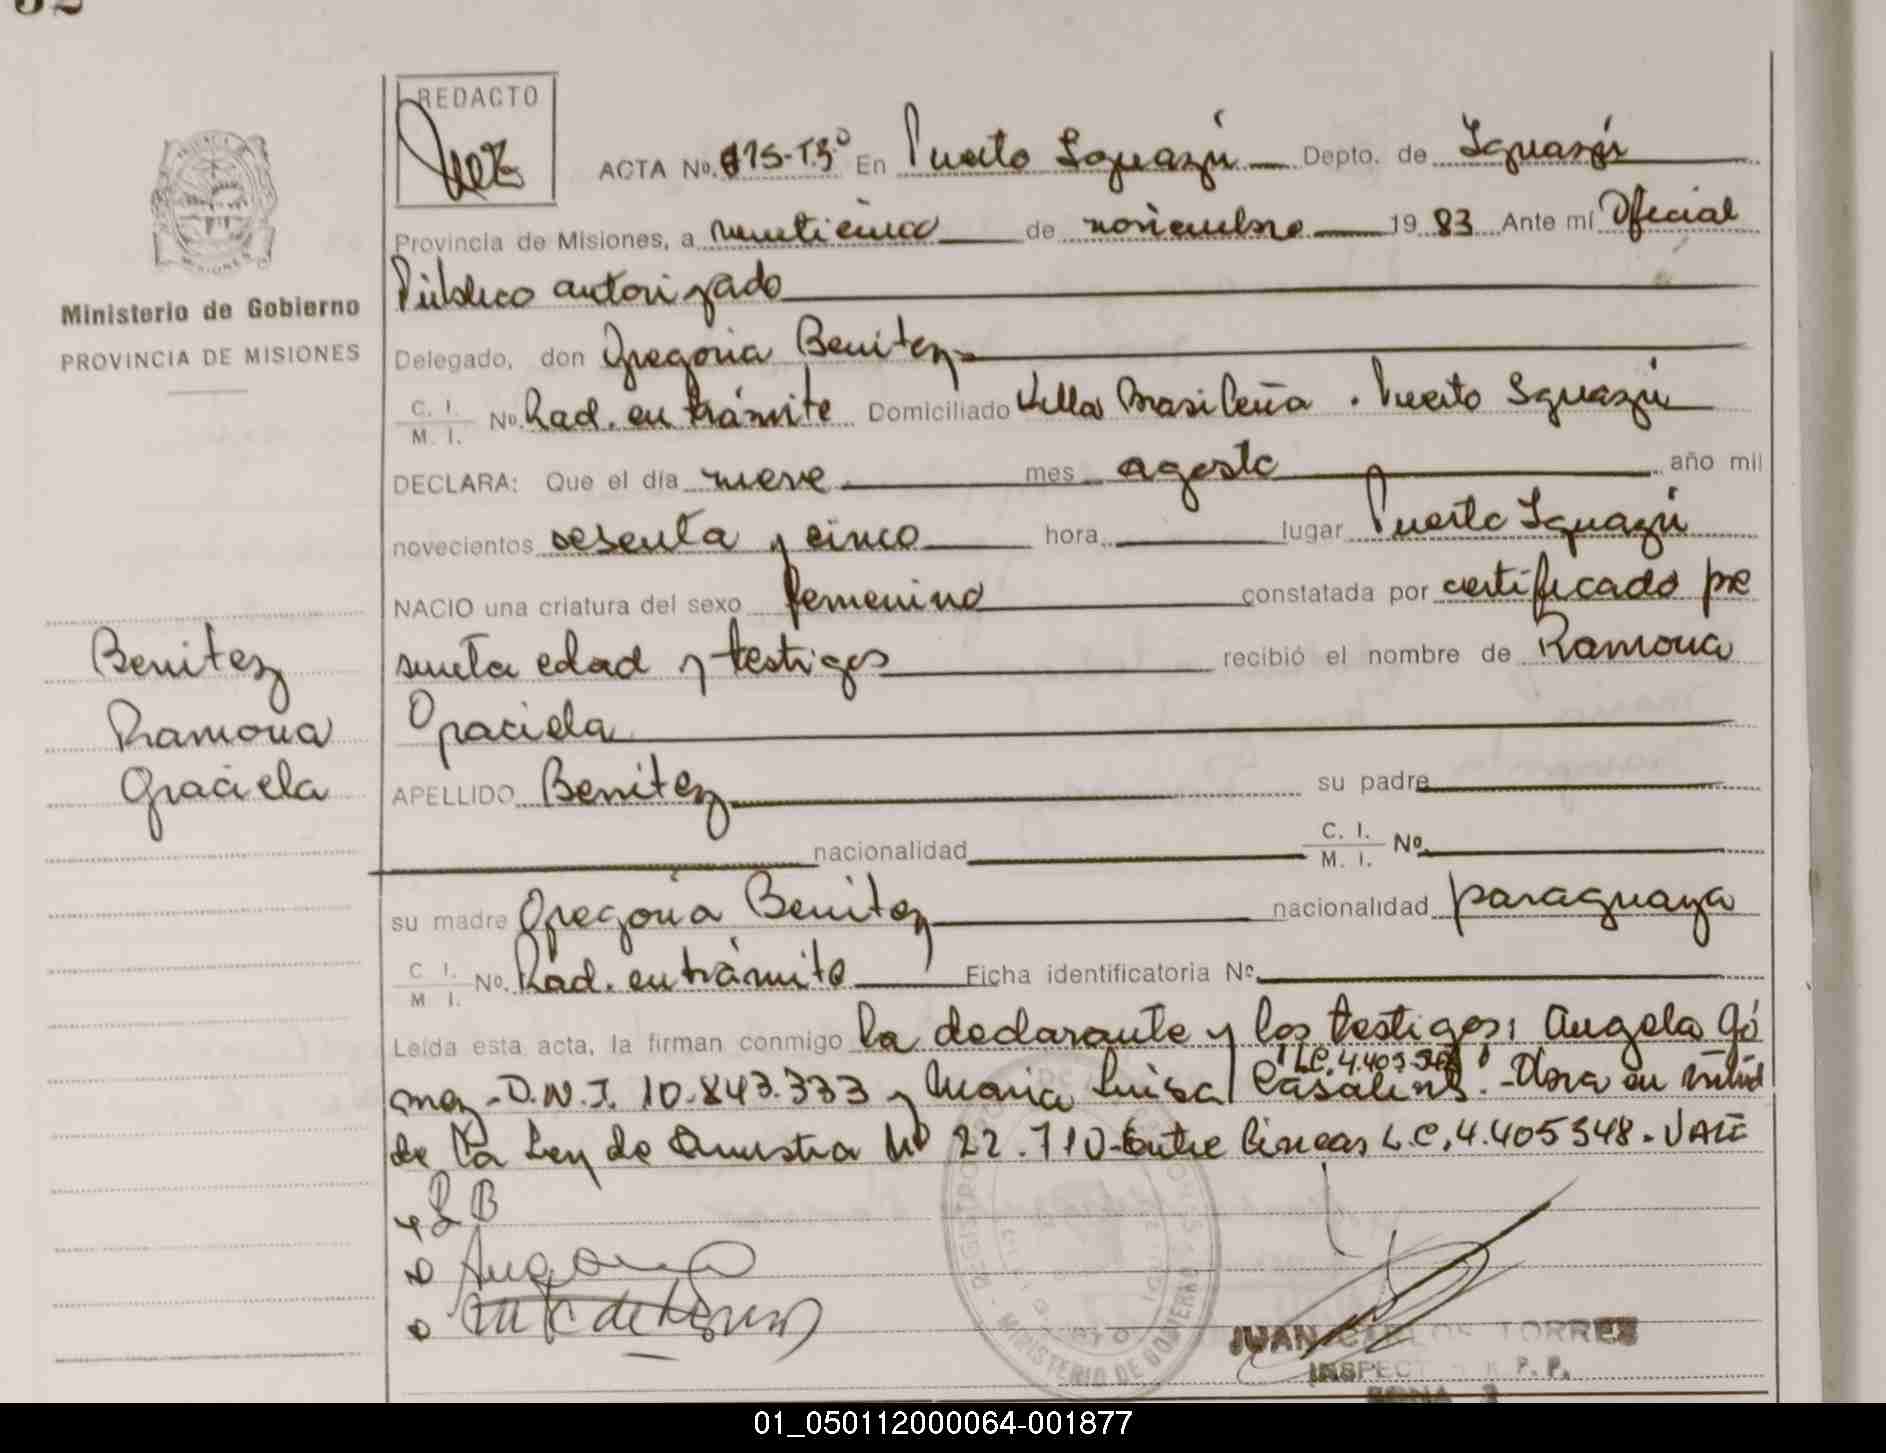 REDACTO
ACTA No. 615-T.3º En Puerto Iguazú Depto. de Iguazú
Provincia de Misiones, a veinticinco de noviembre 19 83 Ante mí Oficial
Público autorizado
Ministerio de Gobierno
PROVINCIA DE MISIONES
Delegado, don Gregoria Benitez
C. I.
M. I. No. Rad. en trámite Domiciliado Villa Brasileña . Puerto Iguazú
DECLARA: Que el día nueve mes agosto año mil
novecientos sesenta y cinco hora lugar Puerto Iguazú
NACIO una criatura del sexo femenino constatada por certificado pre
sunta edad y testigos recibió el nombre de Ramona
Graciela
Benitez
Ramona
Graciela
APELLIDO Benitez su padre
nacionalidad C. I. M. I. No.
su madre Gregoria Benitez nacionalidad paraguaya
C. I.
M. I. No. Rad. en trámite Ficha identificatoria No.
Leída esta acta, la firman conmigo la declarante y los testigos: Angela Gó
mez - D.N.I. 10.843.333 y Maria Luisa
de la Ley de Amnistia Nº 22.710-Entre lineas L.C. 4.405348. VALE
MINISTERIO DE GOBIERNO
JUAN CARLOS TORRES
INSPECTOR R. P. P.
01_050112000064-001877